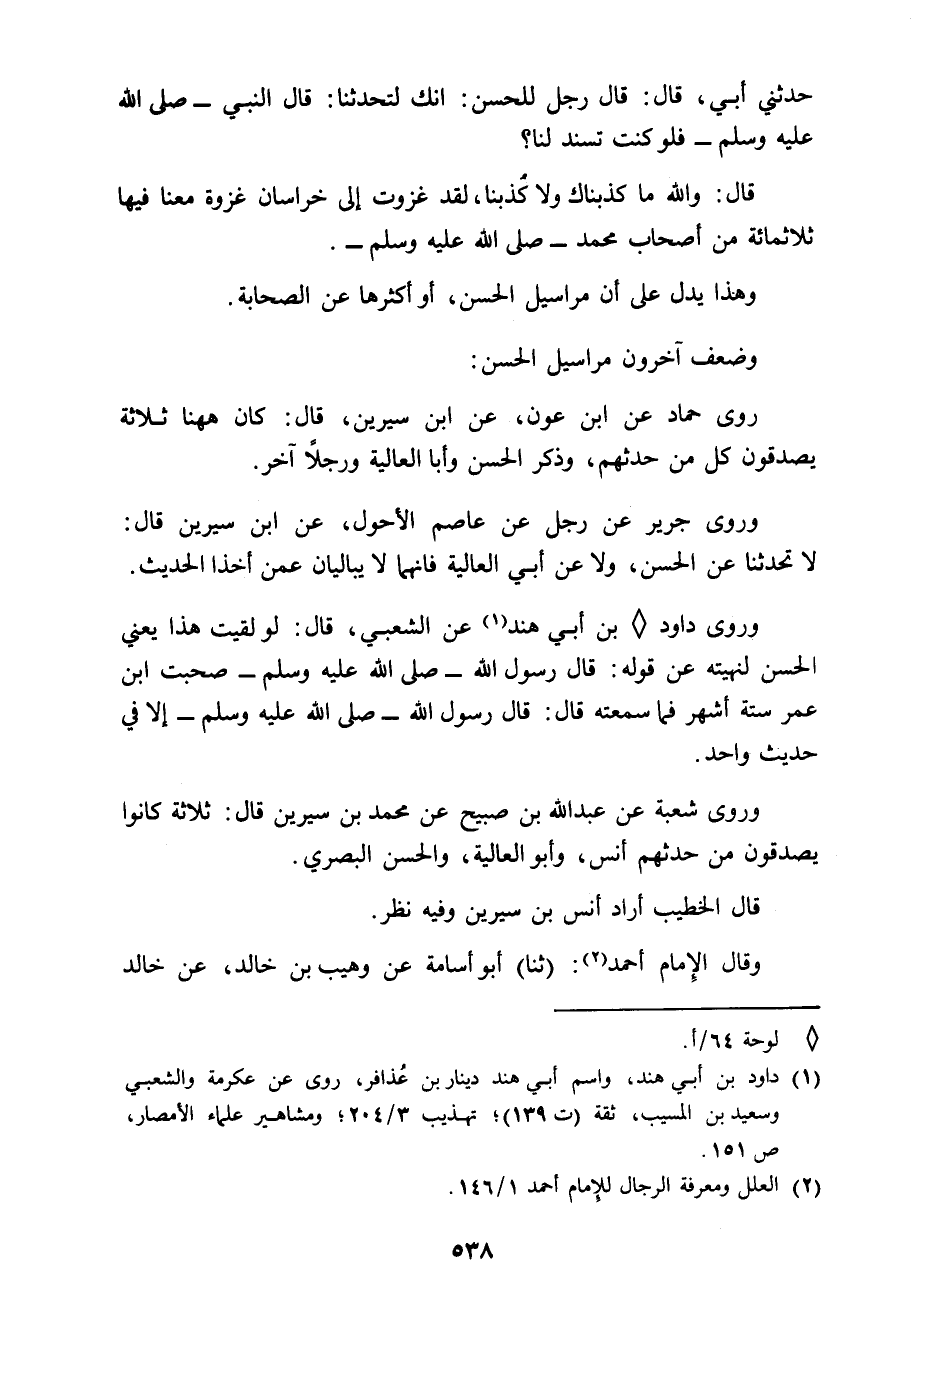 حدثني أبي، قال: قال رجل للحسن: انك لتحدثنا: قال النبي ــ صلى الله
عليه وسلم ــ فلو كنت تسند لنا؟
قال: والله ما كذبناك ولا كُذبنا، لقد غزوت إلى خراسان غزوة معنا فيها
ثلاثمائة من أصحاب محمد ــ صلى الله عليه وسلم ــ .
وهذا يدل على أن مراسيل الحسن، أو أكثرها عن الصحابة.
وضعف آخرون مراسيل الحسن:
روى حماد عن ابن عون، عن ابن سيرين، قال: كان ههنا ثلاثة
يصدقون كل من حدثهم، وذكر الحسن وأبا العالية ورجلاً آخر.
وروى جرير عن رجل عن عاصم الأحول، عن ابن سيرين قال:
لا تحدثنا عن الحسن، ولا عن أبي العالية فانهما لا يباليان عمن أخذا الحديث.
وروى داود ◊ بن أبي هند(١) عن الشعبي، قال: لو لقيت هذا يعني
الحسن لنهيته عن قوله: قال رسول الله ــ صلى الله عليه وسلم ــ صحبت ابن
عمر ستة أشهر فما سمعته قال: قال رسول الله ــ صلى الله عليه وسلم ــ إلا في
حديث واحد.
وروى شعبة عن عبدالله بن صبيح عن محمد بن سيرين قال: ثلاثة كانوا
يصدقون من حدثهم أنس، وأبو العالية، والحسن البصري.
قال الخطيب أراد أنس بن سيرين وفيه نظر.
وقال الإمام أحمد(٢): (ثنا) أبو أسامة عن وهيب بن خالد، عن خالد
◊ لوحة ٦٤/أ.
(١) داود بن أبي هند، واسم أبي هند دينار بن عُذافر، روى عن عكرمة والشعبي
وسعيد بن المسيب، ثقة (ت ١٣٩)؛ تهذيب ٢٠٤/٣؛ ومشاهير علماء الأمصار،
ص ١٥١.
(٢) العلل ومعرفة الرجال للإمام أحمد ١٤٦/١.
٥٣٨